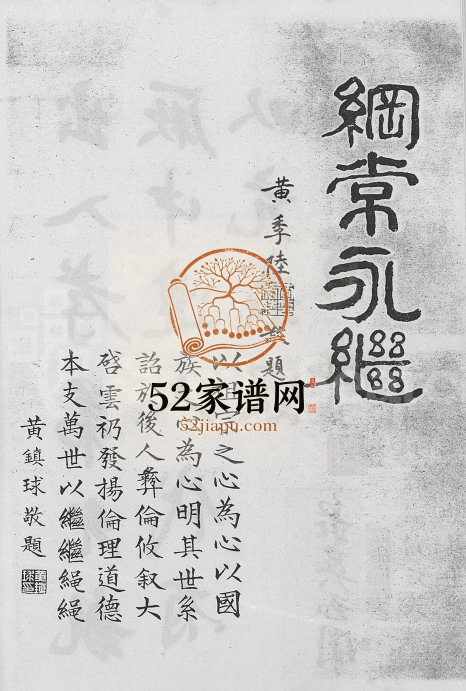 綱常永繼
黃季陸敬題
以祖宗之心為心以國
族之心為心明其世系
詔於後人彝倫攸叙大
啓雲礽發揚倫理道德
本支萬世以繼繼繩繩
黃鎮球敬題
52家谱网
52jiapu.com